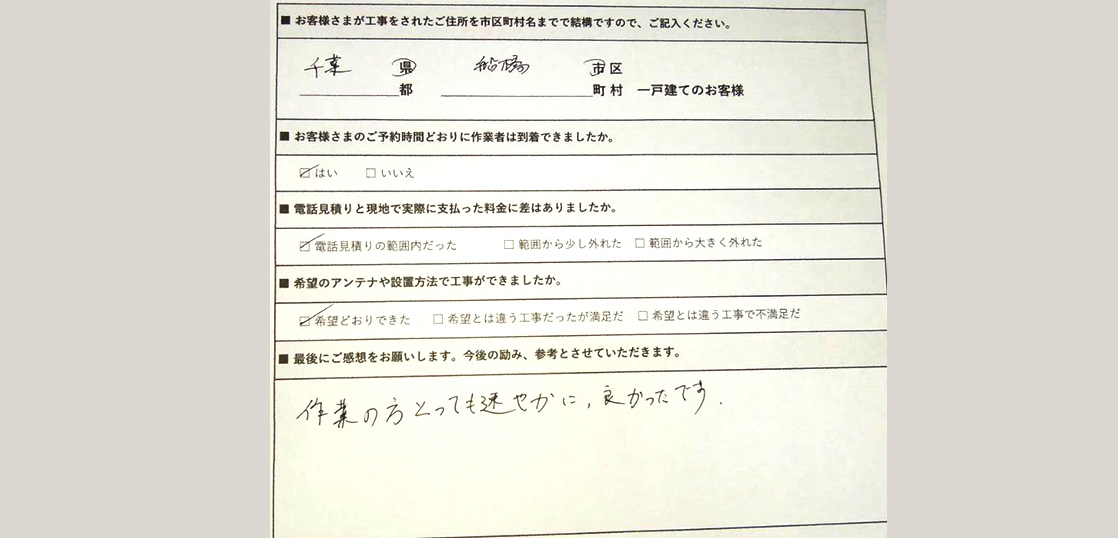 ■ お客様さまが工事をされたご住所を市区町村名までで結構ですので、ご記入ください。
千葉 県 船橋 市 区
都 町 村 一戸建てのお客様
■ お客様さまのご予約時間どおりに作業者は到着できましたか。
☑ はい □ いいえ
■ 電話見積りと現地で実際に支払った料金に差はありましたか。
☑ 電話見積りの範囲内だった □ 範囲から少し外れた □ 範囲から大きく外れた
■ 希望のアンテナや設置方法で工事ができましたか。
☑ 希望どおりできた □ 希望とは違う工事だったが満足だ □ 希望とは違う工事で不満足だ
■ 最後にご感想をお願いします。今後の励み、参考とさせていただきます。
作業の方とっても速やかに，良かったです．